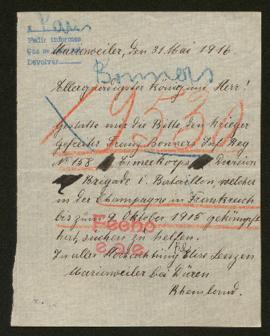 Pedir informes
Devolver
Marienweiler, den 31. Mai 1916.
Bonners
Allergnädigster König und Herr!
19530
gestatte mir die Bitte, den Krieger
Gefreiter Franz Bonners Inf. Reg
No 158 Armeekorps Division
Brigade I. Bataillon welcher
in der Champagne in Frankreich
bis zum 9. Oktober 1915 gekämpft
hat, suchen zu helfen.
Fecho
In aller Hochachtung
Marienweiler bei Düren
Rheinland.